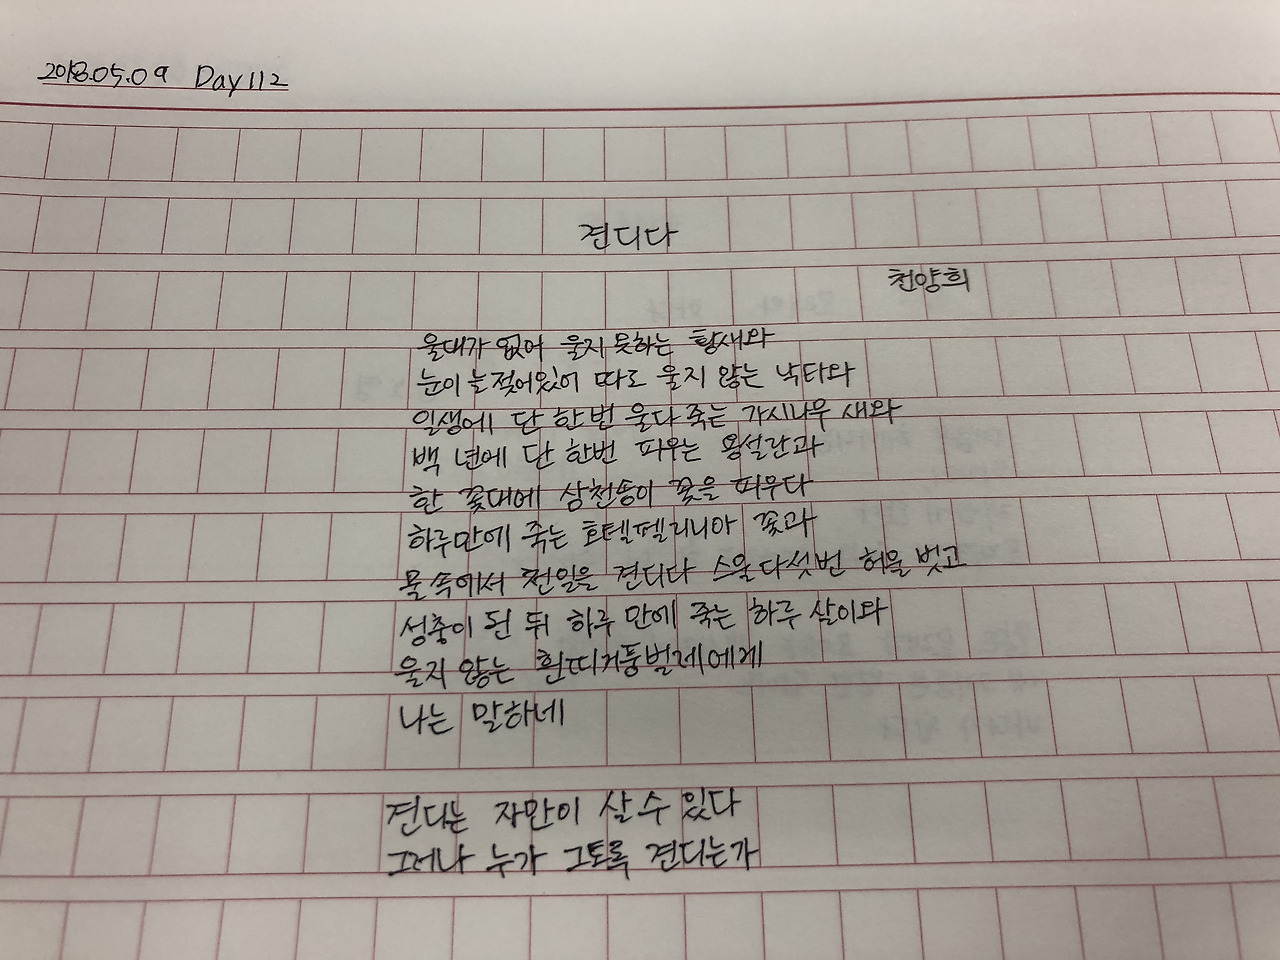 2018.05.09 Day112
견디다
천양희
울대가 없어 울지 못하는 황새와
눈이 늘 젖어있어 따로 울지 않는 낙타와
일생에 단 한번 울다 죽는 가시나무 새와
백 년에 단 한번 피우는 용설란과
한 꽃대에 삼천송이 꽃을 피우다
하루만에 죽는 호텔펠리니아 꽃과
물 속에서 천일을 견디다 스물다섯번 허물 벗고
성충이 된 뒤 하루 만에 죽는 하루 살이와
울지 않는 흰띠거품벌레에게
나는 말하네
견디는 자만이 살 수 있다
그러나 누가 그토록 견디는가